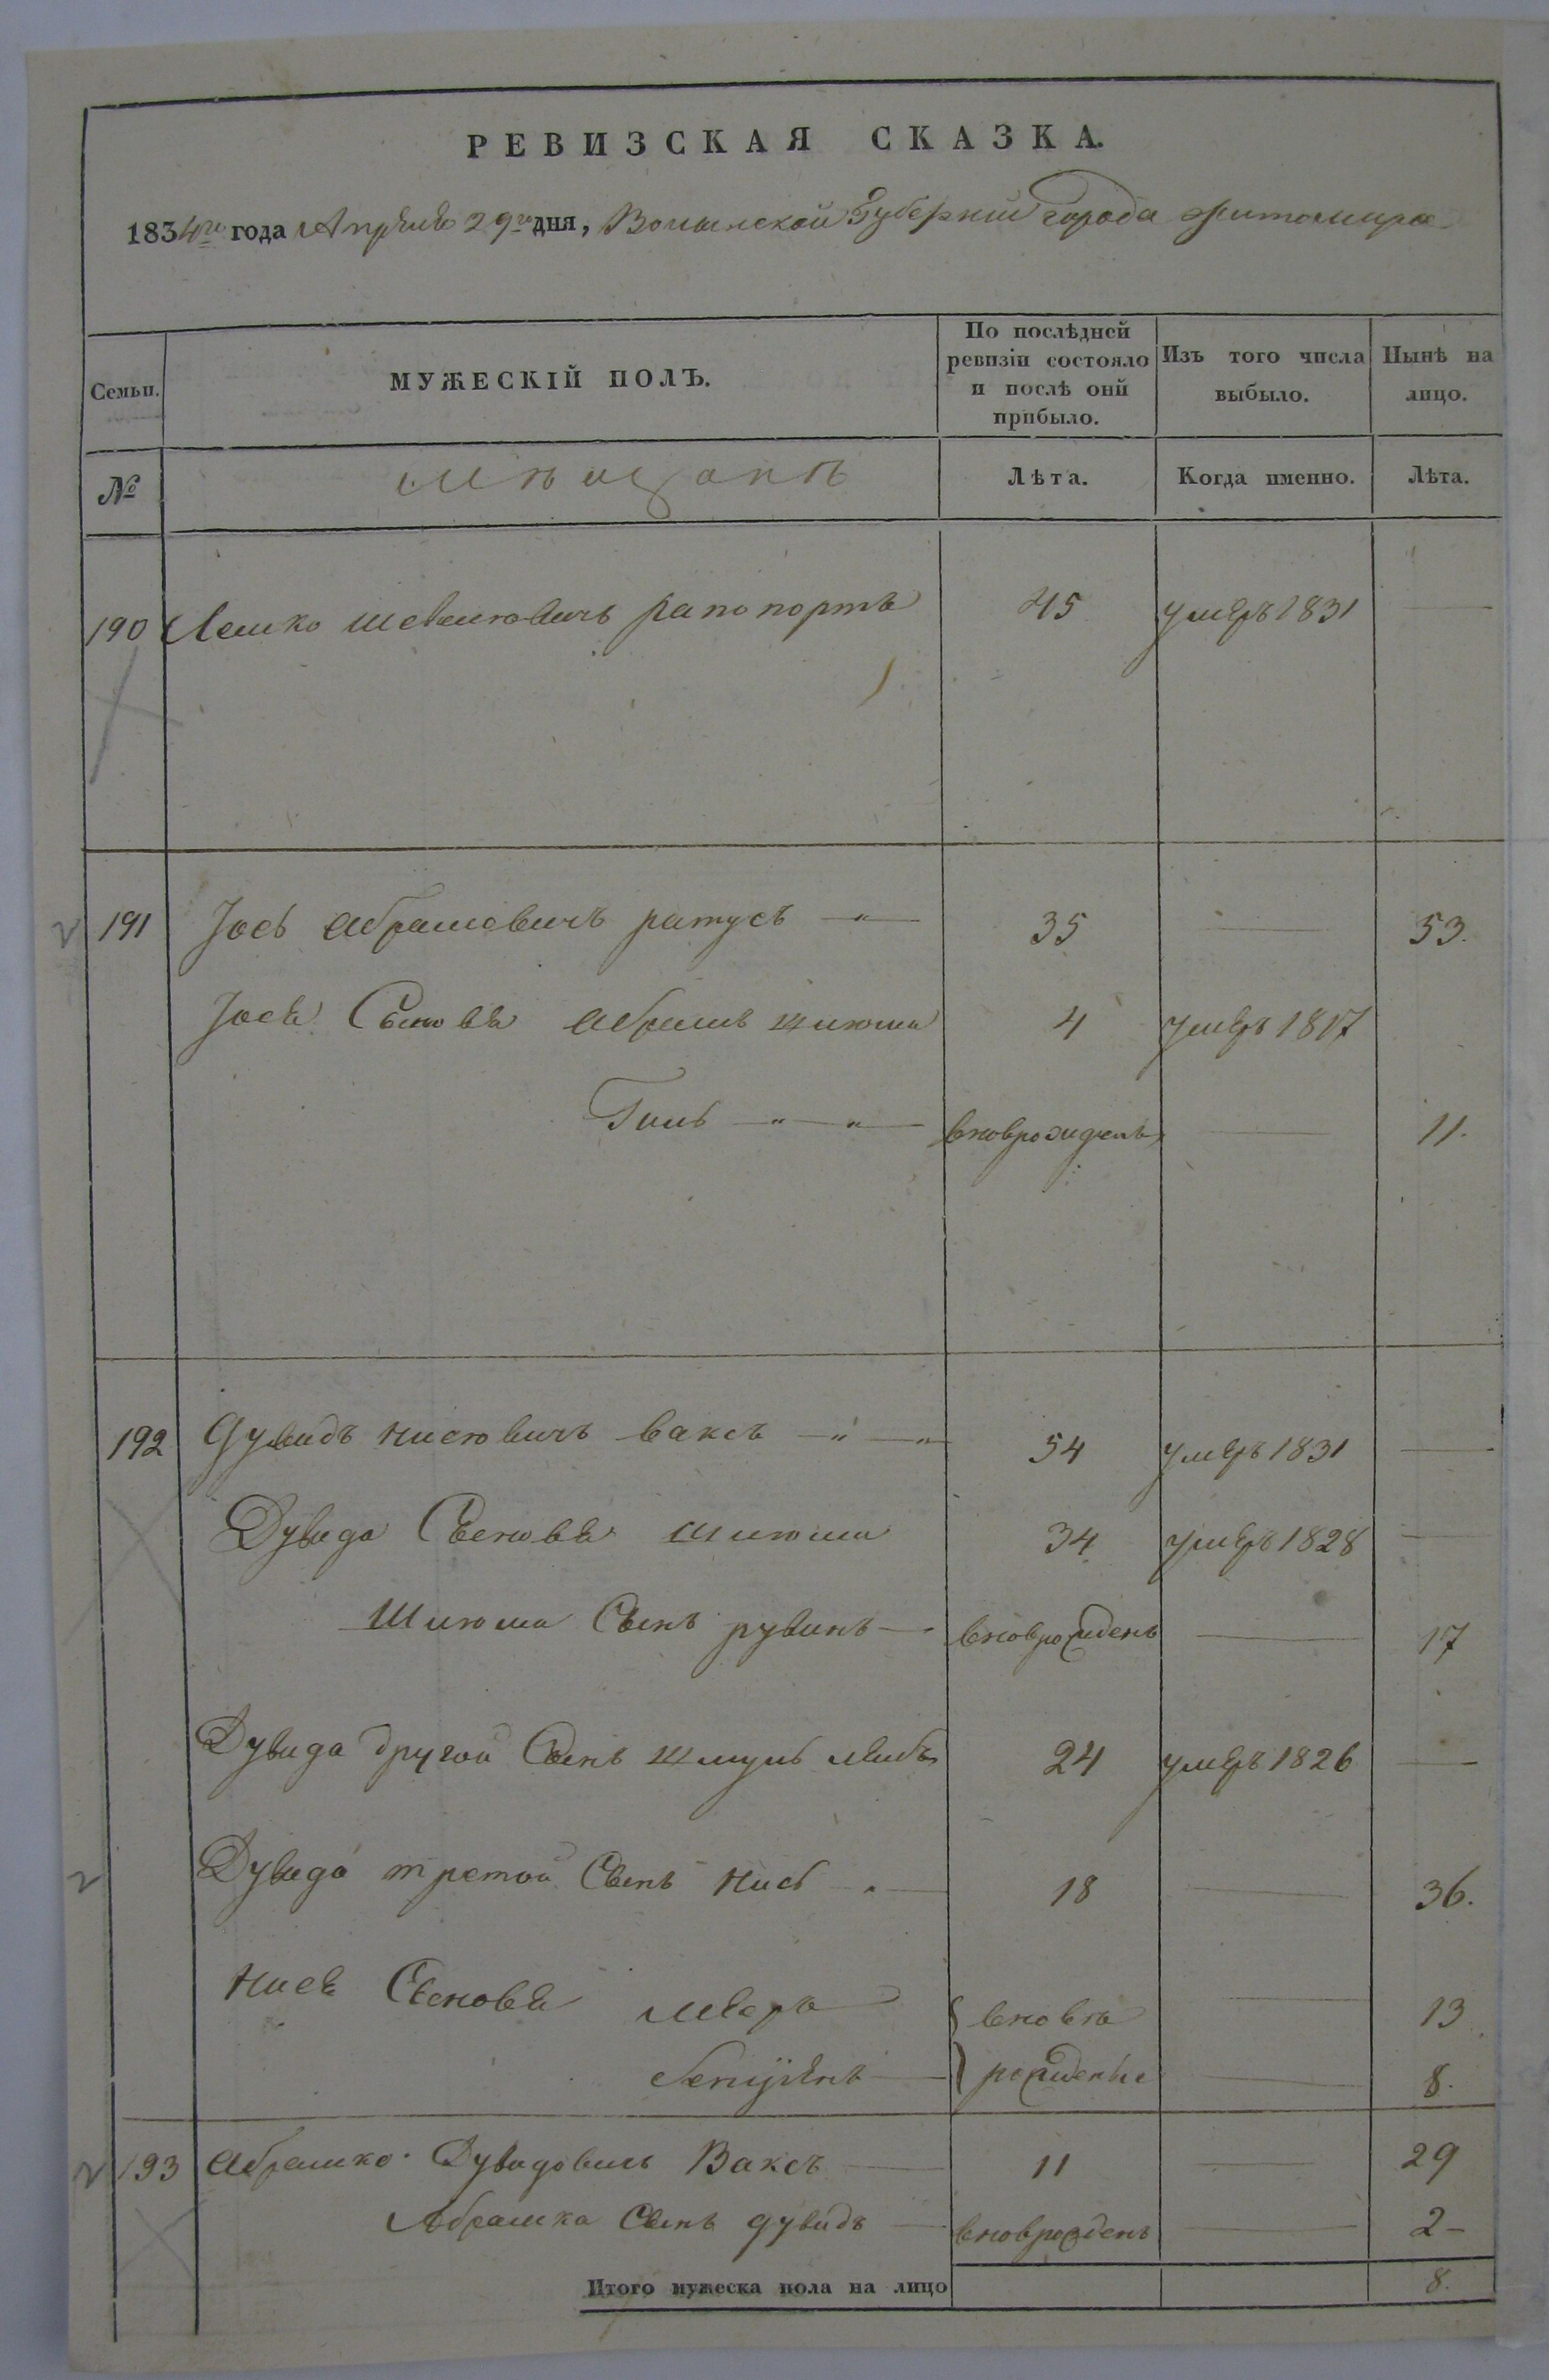 РЕВИЗСКАЯ СКАЗКА.
1834го года Апреля 29го дня, Волынской Губернии Города Житомира
Семьи. МУЖЕСКІЙ ПОЛЪ. По послѣдней ревизіи состояло и послѣ оной прибыло. Изъ того числа выбыло. Нынѣ на лицо.
№ Мѣщанъ Лѣта. Когда именно. Лѣта.
190 Лейко Рапопортъ 45 умеръ 1831 —
191 Іось Абрамовичъ ратусъ — „ — 35 — 53.
Іося Сыновя Абрамъ шлюма 4 умеръ 1817
Гиль — „ — „ — вноврожденъ — 11.
192 Дувидъ Нисовичъ Ваксъ — „ — „ 54 умеръ 1831 —
Дувида Сыновя шлюма 34 умеръ 1828 —
Шлюма Сынъ рувинъ — вноврожденъ — 17
Дувида другой Сынъ шмуль лейбъ 24 умеръ 1826 —
Дувида третой Сынъ Нись „ — 18 — 36.
Нися Сыновя мееръ { вновь — 13
— } рожденые — 8.
193 Абрамко Дувидовичъ Ваксъ — 11 — 29
Абрамка Сынъ дувидъ — вноврожденъ — 2 –
Итого мужеска пола на лицо 8.
2
2
2